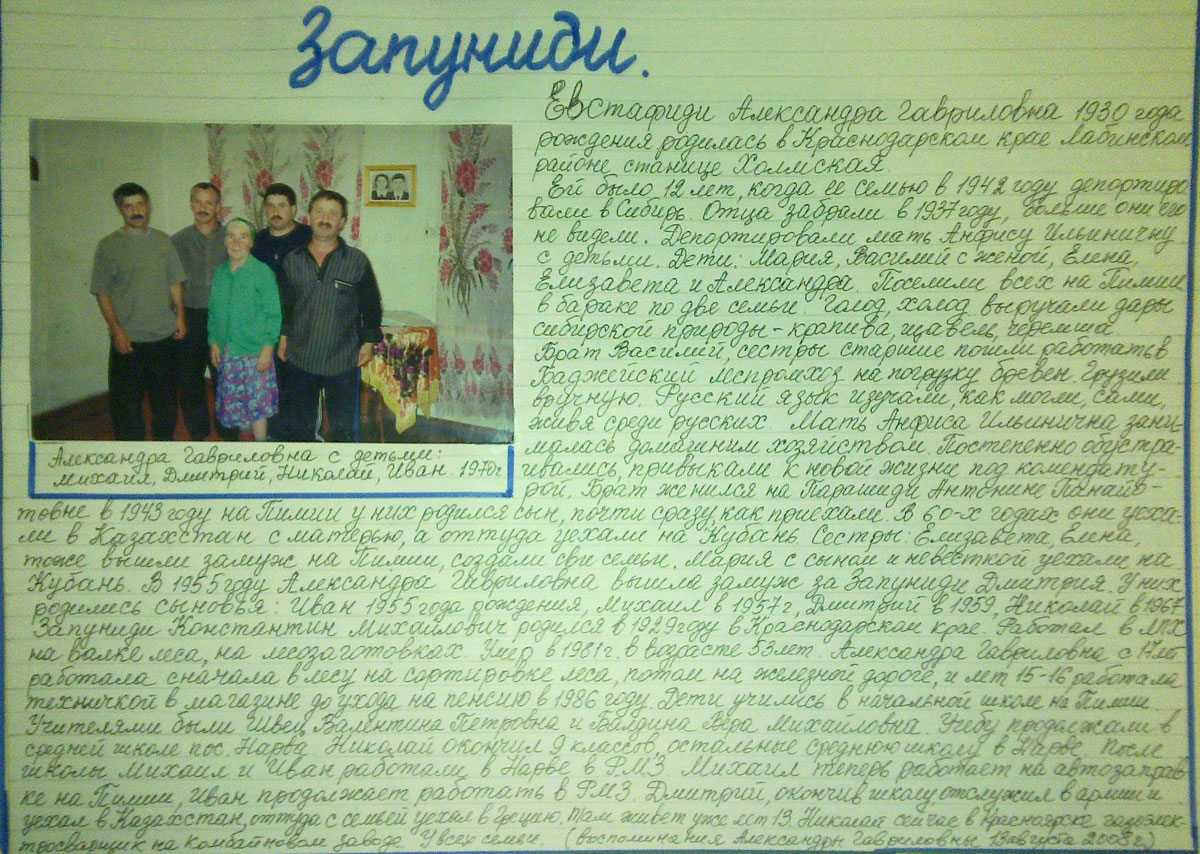 Запуниди.
Евстафиди Александра Гавриловна 1930 года
рождения родилась в Краснодарском крае Лабинском
районе станице Холмская.
Ей было 12 лет, когда ее семью в 1942 году депортиро
вали в Сибирь. Отца забрали в 1937 году, больше они его
не видели. Депортировали мать Анфису Ильиничну
с детьми. Дети: Мария, Василий с женой, Елена,
Елизавета и Александра. Поселили всех на Пимии
в бараке по две семьи. Голод, холод выручали дары
сибирской природы - крапива, щавель, черемша.
Брат Василий, сестры старшие пошли работать в
Баджейский леспромхоз на погрузку бревен. Грузили
вручную. Русский язык изучали, как могли, сами,
живя среди русских. Мать Анфиса Ильинична зани-
малась домашним хозяйством. Постепенно обустра-
ивались, привыкали к новой жизни под комендату-
рой. Брат женился на Парашиди Антонине Панайо-
товне в 1943 году на Пимии у них родился сын, почти сразу, как приехали. В 60-х годах они уеха-
ли в Казахстан с матерью, а оттуда уехали на Кубань. Сестры: Елизавета Елена,
тоже вышли замуж на Пимии, создали сви семьи. Мария с сыном и невесткой уехали на
Кубань. В 1955 году Александра Гавриловна вышла замуж за Запуниди Дмитрия. У них
родились сыновья: Иван 1955 года рождения, Михаил в 1957 г, Дмитрий в 1959, Николай в 1967
Запуниди Константин Михайлович родился в 1929 году в Краснодарском крае. Работал в
на валке леса, на лесозаготовках. Умер в 1981 г. в возрасте 53 лет. Александра Гавриловна с
работала сначала в лесу на сортировке леса, потом на железной дороге, и лет 15-16 работала
техничкой в магазине до ухода на пенсию в 1986 году. Дети учились в начальной школе на Пимии
Учителями были Швец Валентина Петровна и Вера Михайловна. Учебу продолжали в
средней школе пос. Нарва. Николай окончил 9 классов, остальные среднюю школу в Нарве. После
школы Михаил и Иван работали в Нарве в РМЗ. Михаил теперь работает на автозаправ-
ке на Пимии, Иван продолжает работать в РМЗ. Дмитрий, окончив школу отслужил в армии и
уехал в Казахстан, оттуда с семьей уехал в Грецию, там живет уже лет 13. Николай сейчас в Красноярске газоэлек-
тросварщик на комбайновом заводе. У всех семьи. (воспоминания Александры Гавриловны 13 августа г.)
Александра Гавриловна с детьми:
Михаил, Дмитрий, Николай, Иван 1970г